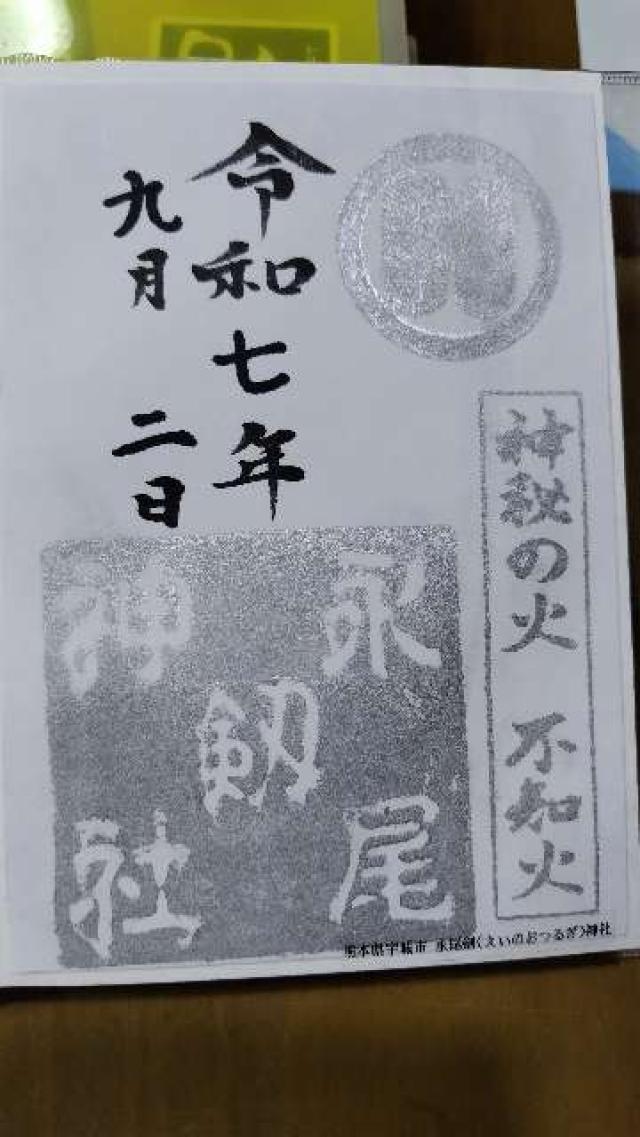 神秘の火 不知火
令和七年
九月 二日
永尾
剱
神社
熊本県宇城市 永尾剱(えいのおつるぎ)神社